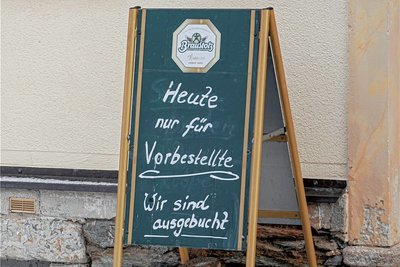 Braustolz
Heute
nur für
Vorbestellte
Wir sind
ausgebucht